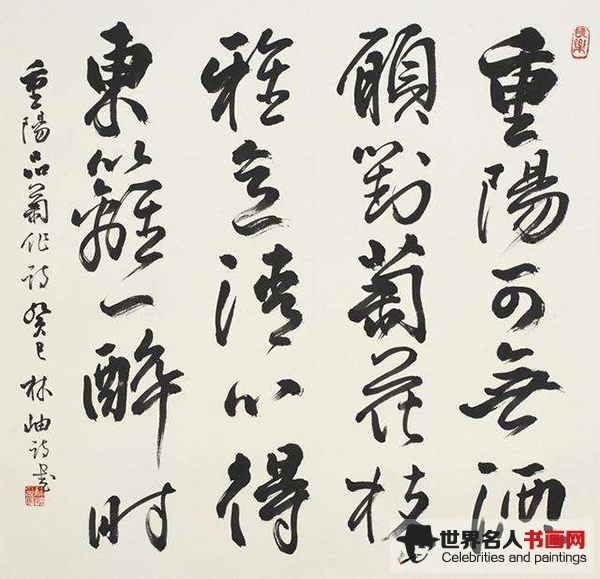 重陽可無酒
願對菊花枝
雅意清心得
東籬一醉时
重陽品菊作詩癸巳林岫詩書
世界名人书画网
Celebrities and paintings